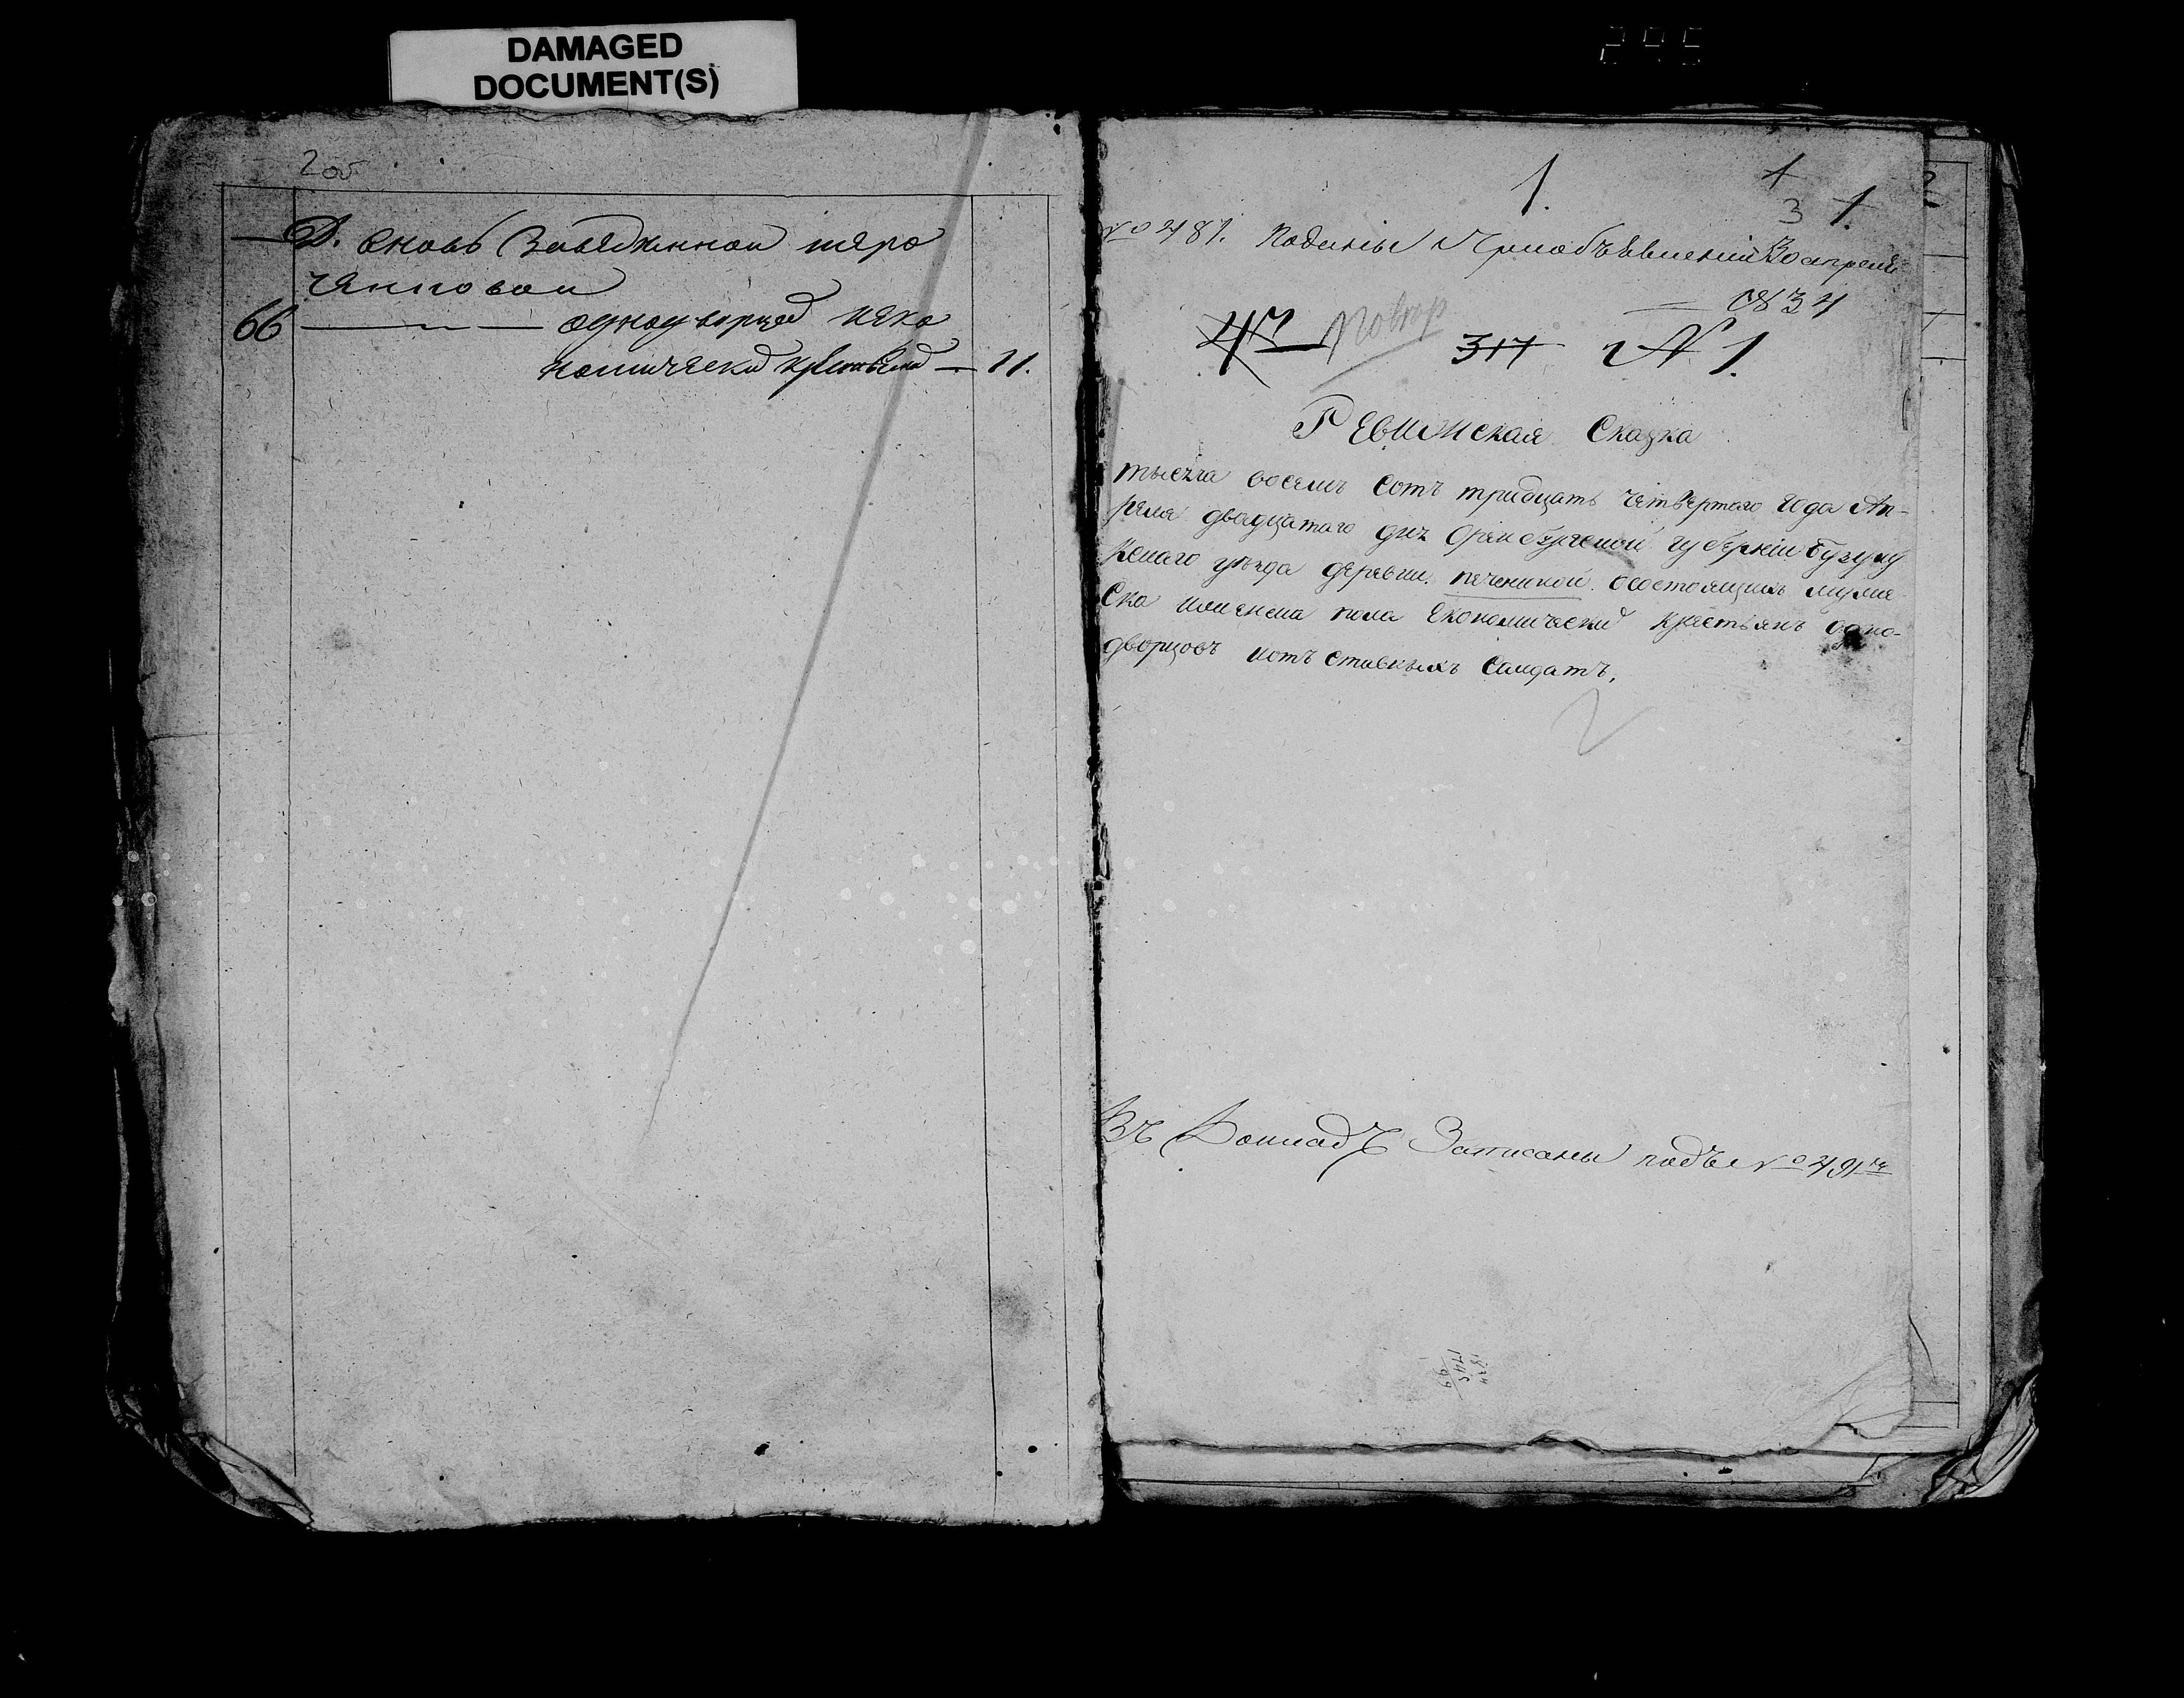 DAMAGED
DOCUMENT(S)
Д. вновь Заведенной
66 — однодворцов и эко
номически крестьянъ — 11.
1.
1
3 1.
№ 481. Поданы При объявлении 30 апреля
1834
47 повтор 317 № 1.
Ревижская Сказка
тысеча восемь Сотъ тридцать четвертаго года Ап-
реля двадцатаго дня Оренбургской губернии Бузулу
кскаго уезда деревни. печенкой. о состоящихъ муже
ска и женска пола Економически крестьянъ одно-
дворцовъ и отъ ставныхъ Салдатъ.
2
Въ Докладъ Записаны подъ № 491
1834
1745